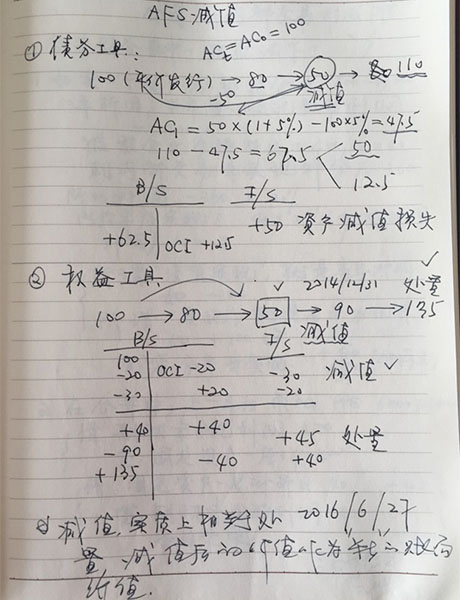 AFS-减值
① 债券工具: AC_t=AC_0=100
100 (平价发行) → 80 → 50 → 110
-50 减值
AC_1 = 50×(1+5%) - 100×5% = 47.5
110 - 47.5 = 67.5 50
12.5
B/S I/S
+62.5 OCI +12.5 +50 资产减值损失
② 权益工具 ✓ 2014/12/31 处置 ✓
100 → 80 → 50 → 90 → 135
B/S I/S 减值
100
-20 OCI -20 -30 减值 ✓
-30 +20 -20
+40 +40 +45 处置
-90 -40 +40
+135
减值,实质上相当于处 2016/6/27
置,减值后的
价值.